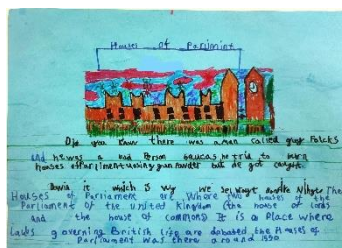 Houses of Parliment
Did you know there was a man called guy Falcks
and he was a bad Person because he trid to burn
houses of parliment using gun Powder but he got caught.
it which is why we say The
Houses of Parliament are Where two houses of the
Parliament of the United Kingdom (the house of Lords
and the house of commons) It is a Place where
Laws governing British Life are debated. the Houses of
Parliament was there around